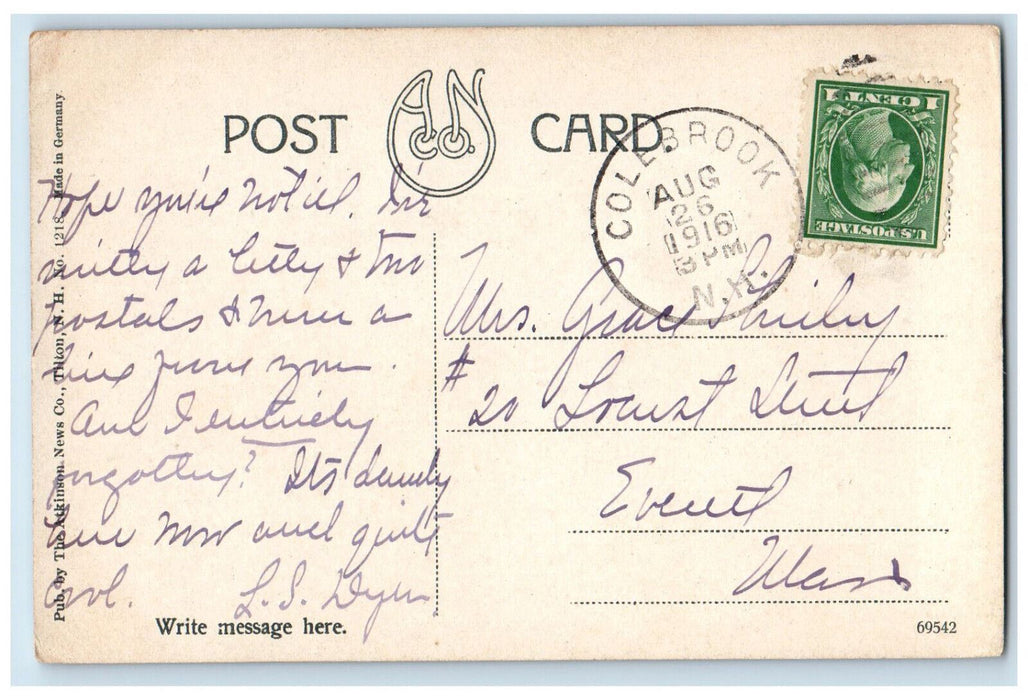 POST CARD.
A.N. Co.
COLEBROOK
AUG
26
1916
3 PM
N.H.
1 CENT 1
U.S. POSTAGE
Hope you're not ill. I've
written a letter & two
postals & never a
line from you.
Am I entirely
forgotten? Its dandy
here now and quite
cool. L.S. Dyer
Mrs. Grace Smiley
# 20 Locust Street
Everett
Mass
Pub. by The Atkinson News Co., Tilton, N. H. No. 1218. Made in Germany
Write message here.
69542